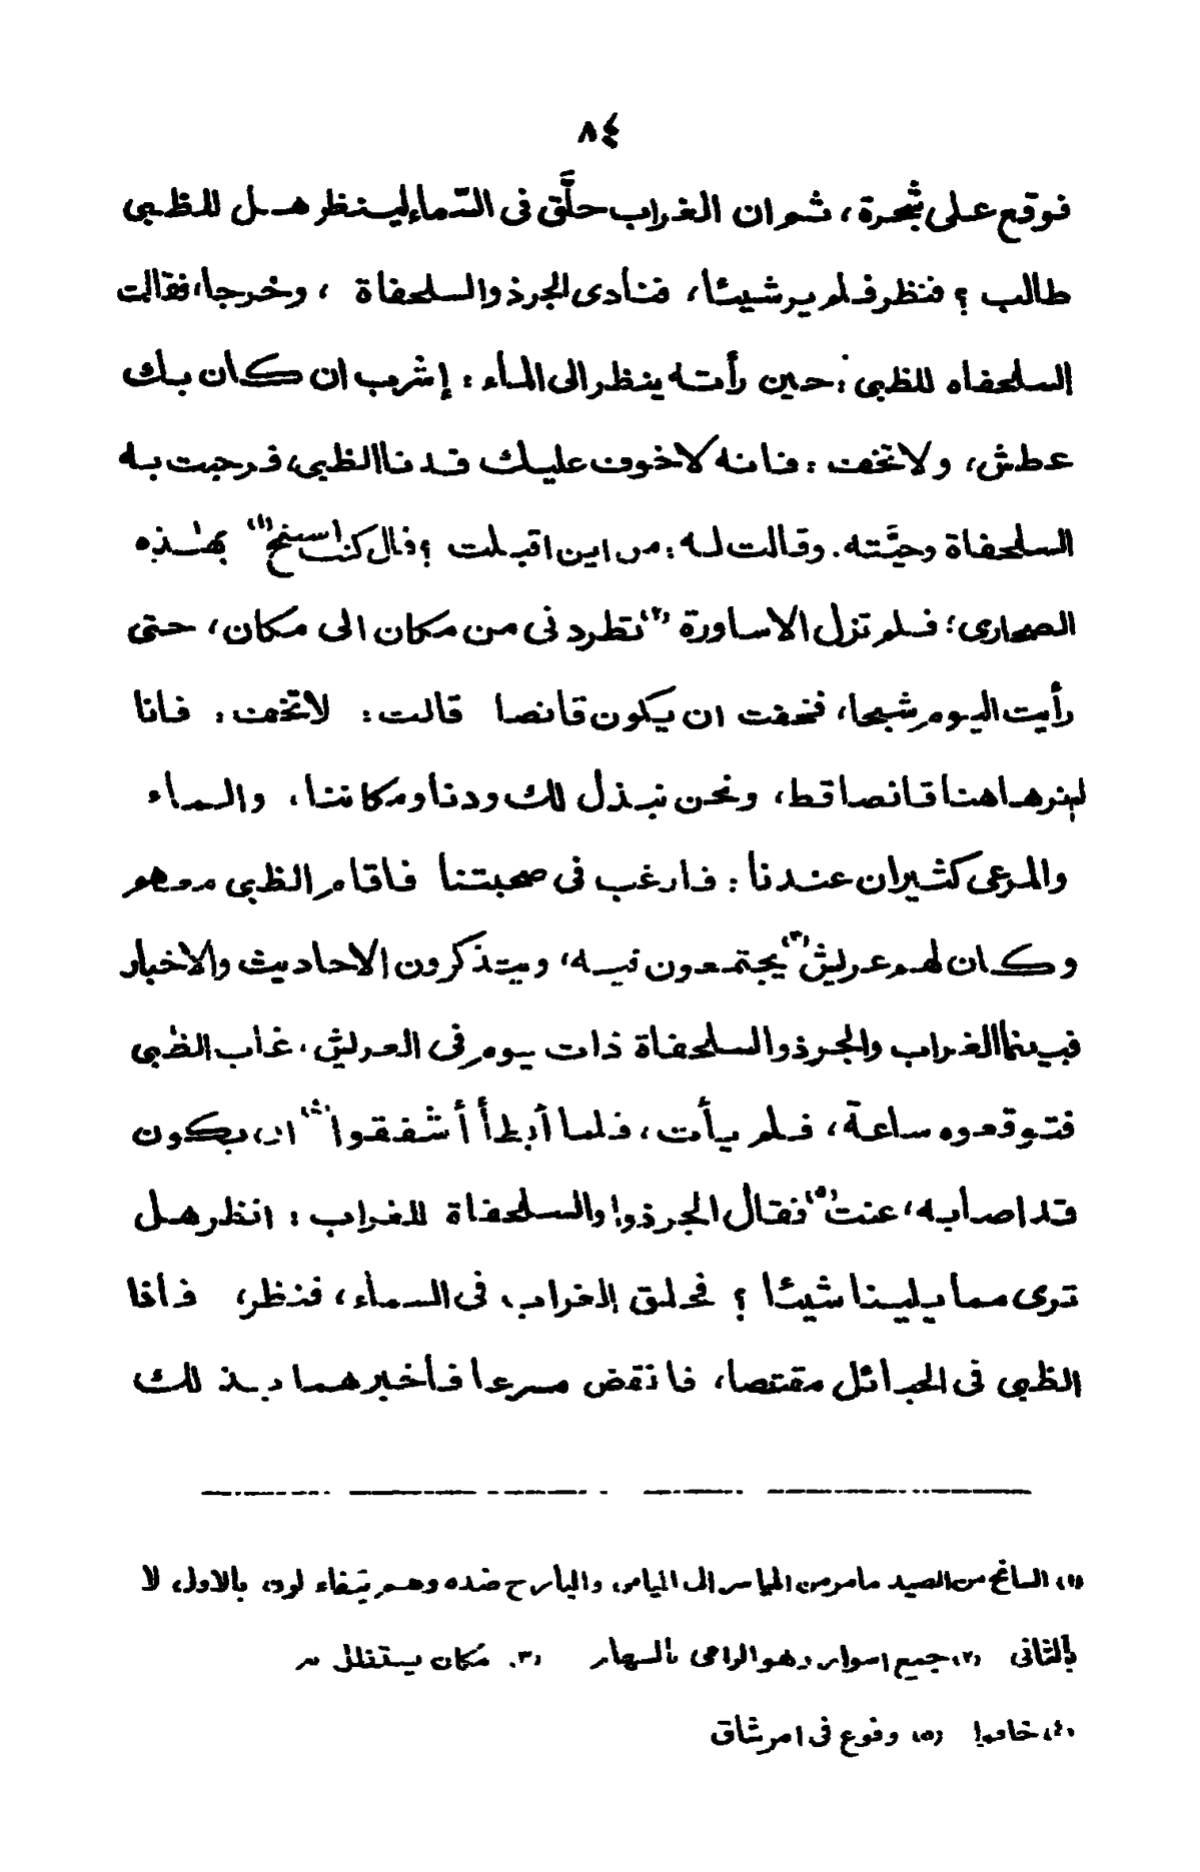 ٨٤
فوقع على شجرة، ثم ان الغراب حلَّق فى السّماء لينظر هل للظبى
طالب ؟ فنظر فلم ير شيئا، فنادى الجرذ والسلحفاة ، وخرجا، فقالت
السلحفاه للظبى : حين رأته ينظر الى الماء : إشرب ان كان بك
عطش، ولا تخف : فانه لا خوف عليك فدنا الظبى، فرحبت به
السلحفاة وحيَّته. وقالت له : من اين اقبلت ؟ قال كنت اسنح (١) بهذه
الصحارى؛ فلم تزل الاساورة (٢) تطرد نى من مكان الى مكان، حتى
رأيت اليوم شبحا، فخفت ان يكون قانصا قالت : لا تخف : فانا
لم نر هاهنا قانصا قط، ونحن نبذل لك ودنا ومكاننا، والماء
والمرعى كثيران عندنا : فارغب فى صحبتنا فاقام الظبى معهم
وكان لهم عريش (٣) يجتمعون فيه، ويتذكرون الاحاديث والاخبار
فبينما الغراب والجرذ والسلحفاة ذات يوم فى العريش، غاب الظبى
فتوقعوه ساعة، فلم يأت، فلما أبطأ أشفقوا (٤) ان يكون
قد اصابه، عنت (٥) فقال الجرذ والسلحفاة للغراب : انظر هل
ترى مما يلينا شيئا ؟ فحلق الغراب فى السماء، فنظر، فاذا
الظبى فى الحبائل مقتنصا، فانقض مسرعا فأخبرهما بذلك
(١) السانح من الصيد ما مر من المياسر الى الميامن والبارح ضده وهم يتفاءلون بالاول لا
بالثانى (٢) جمع اسوار وهو الرامى بالسهام (٣) مكان يستظل به
(٤) خافوا (٥) وقوع فى امر شاق